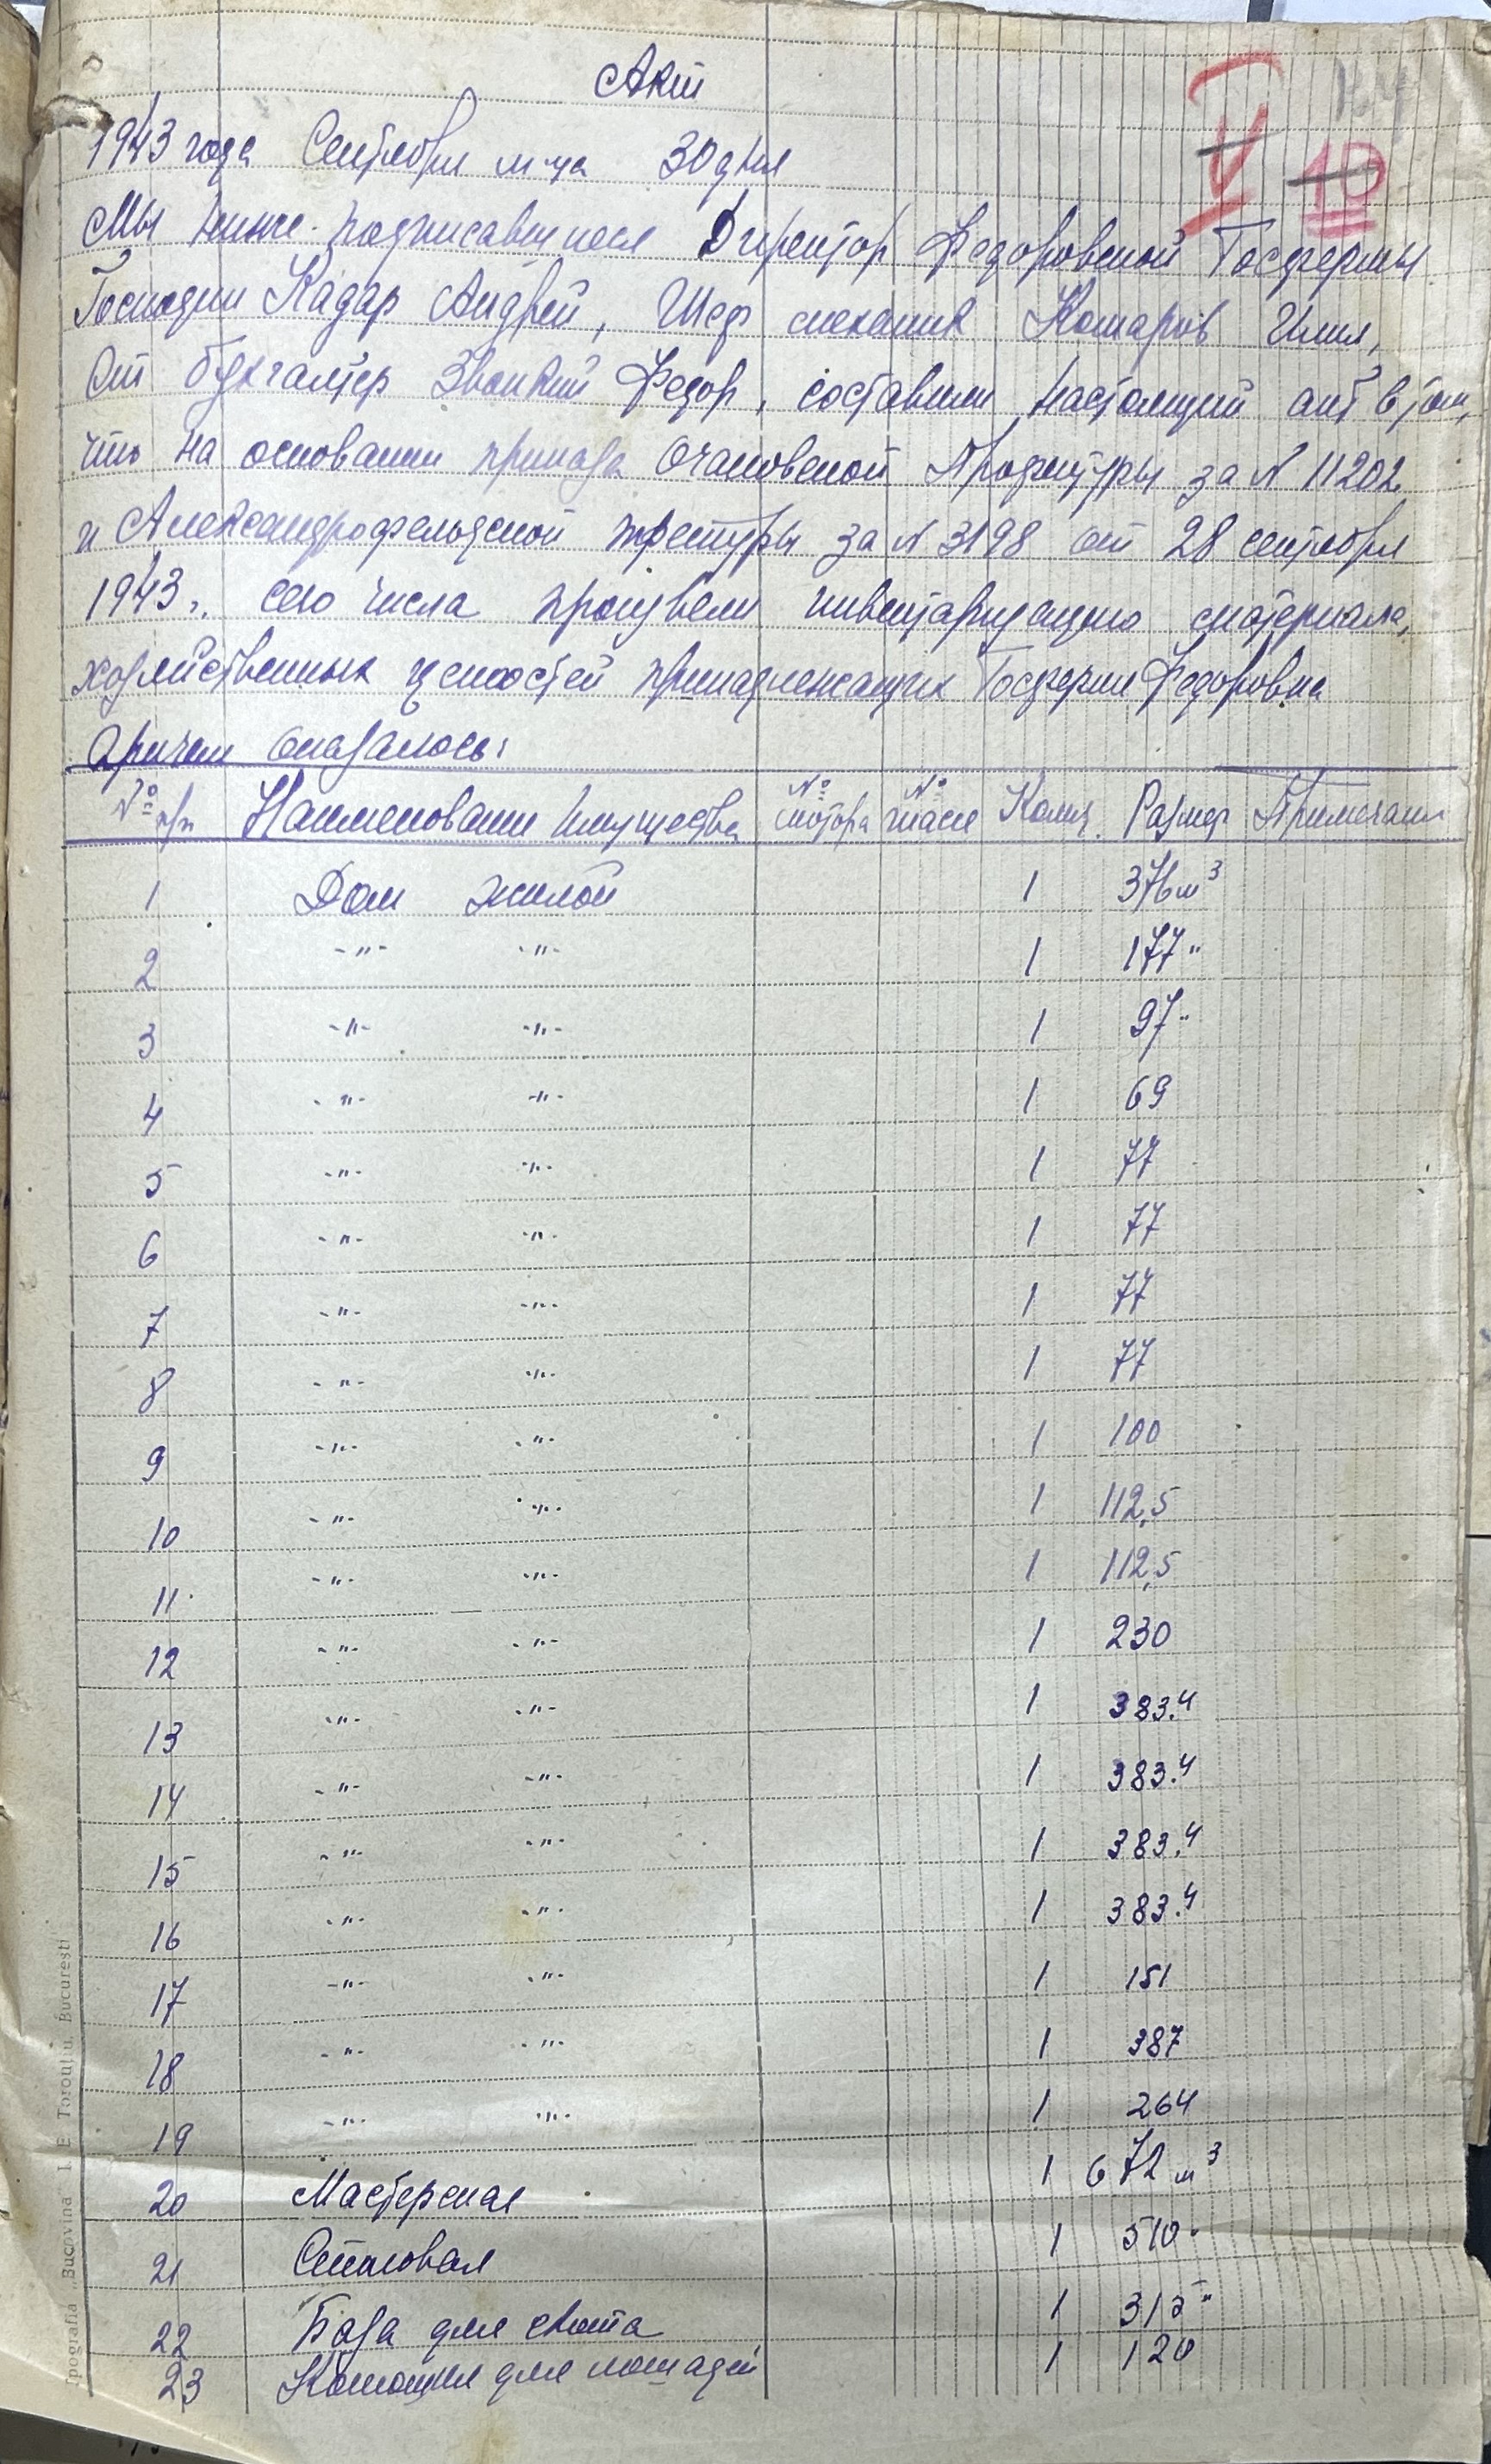 Акт
1943 года Сентября м-ца 30 дня
Мы ниже-подписавшиеся Директор Федоровской Госфермы
Господин Кадар Андрей, Шеф механик Комаров Илья,
От бухгалтер Звонкий Федор, составили настоящий акт в том,
что на основании приказа Очаковской Профектуры за N 11202
и Александрофельдской претуры за N 3198 от 28 сентября
1943 г. сего числа произвели инвентаризацию материала,
хозяйственных ценностей принадлежащих Госферми Федоровка
Причем оказалось:
№ п/п Наименование Имущества № мотора № шасси Колич. Размер Примечание
1 Дом жилой 1 376 м³
2 -"- -"- 1 177 "
3 -"- -"- 1 97 "
4 -"- -"- 1 69
5 -"- -"- 1 77
6 -"- -"- 1 77
7 -"- -"- 1 77
8 -"- -"- 1 77
9 -"- -"- 1 100
10 -"- -"- 1 112,5
11 -"- -"- 1 112,5
12 -"- -"- 1 230
13 -"- -"- 1 383.4
14 -"- -"- 1 383.4
15 -"- -"- 1 383.4
16 -"- -"- 1 383.4
17 -"- -"- 1 151
18 -"- -"- 1 387
19 -"- -"- 1 264
20 Мастерская 1 672 м³
21 Столовая 1 510 "
22 База для скота 1 315 "
23 Конюшня для лошадей 1 120
V 10
Tipografia „Bucovina" I. E. Torouțiu, București